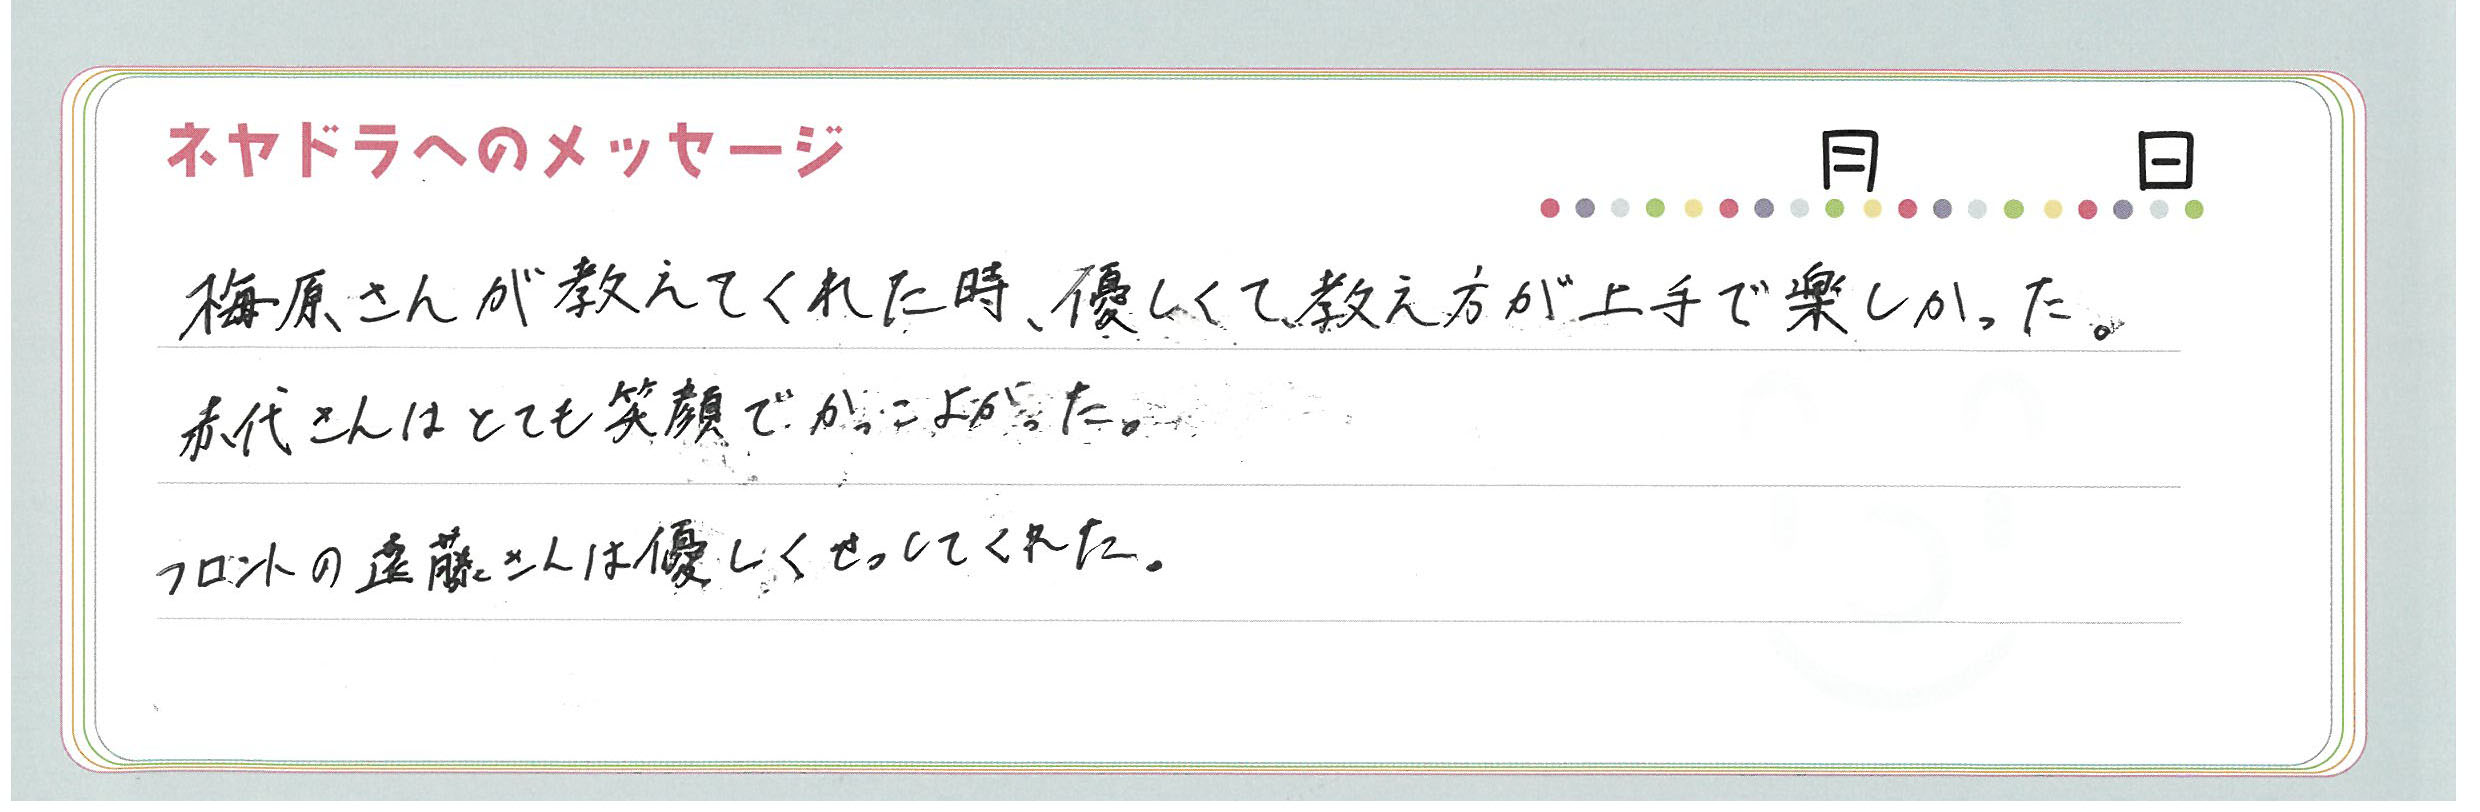 ネヤドラへのメッセージ
月 日
梅原さんが教えてくれた時、優しくて、教え方が上手で楽しかった。
赤代さんはとても笑顔でかっこよかった。
フロントの遠藤さんは優しくせっしてくれた。